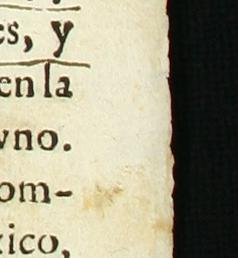 es, y
en la
vno.
om-
xico,